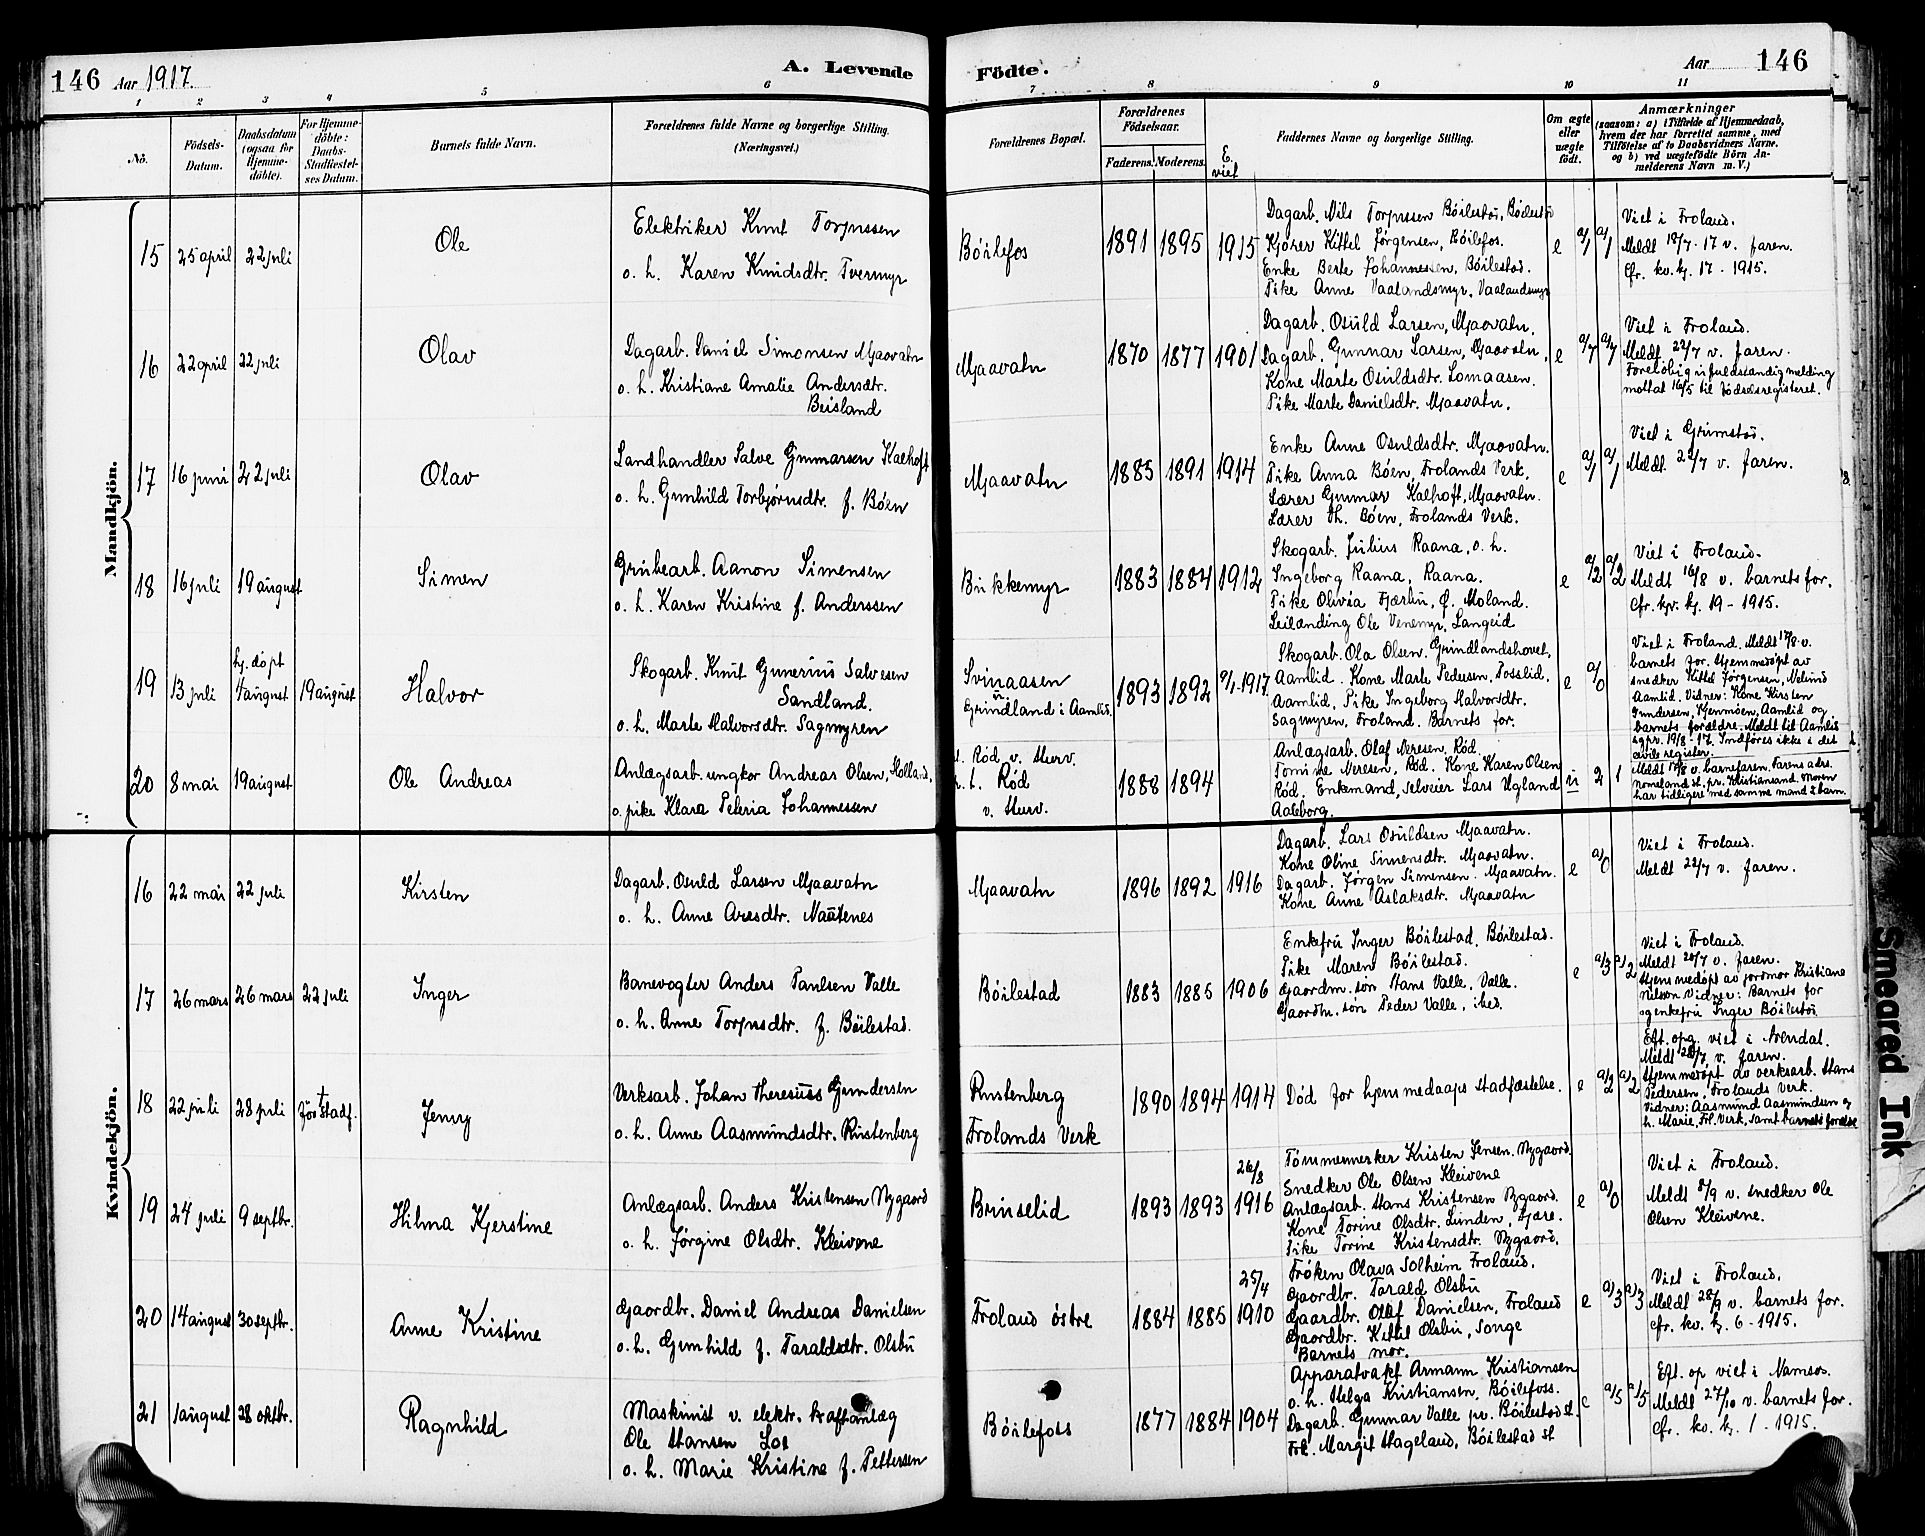 146 Aar 1917.
A. Levende
Födte.
Aar 146
1 2 3 4 5 6 7 8 9 10 11
No.
Födsels-
Datum.
Daabsdatum
(ogsaa for
Hjemme-
döbte).
For Hjemme-
döbte:
Daabs-
Stadfæstel-
ses Datum.
Barnets fulde Navn.
Forældrenes fulde Navne og borgerlige Stilling.
(Næringsvei.)
Forældrenes Bopæl.
Forældrenes
Födselsaar.
Faderens. Moderens.
E.
viet
Faddernes Navne og borgerlige Stilling.
Om ægte
eller
uægte
födt.
Anmærkninger
(saasom: a) i Tilfælde af Hjemmedaab,
hvem der har forrettet samme, med
Tilföielse af to Daabsvidners Navne,
og b) ved uægtefödte Börn An-
melderens Navn m. V.)
Mandkjön.
15 25 april 22 juli
Ole
Elektriker Knut Torjussen
o. h. Karen Knudsdtr. Tvermyr
Böilefos
1891 1895 1915
Dagarb. Nils Torjussen Böilestö, Böilestö
Kjører Kittel Jørgensen, Böilefos.
Enke Berte Johannessen, Böilestad.
Pike Anne Vaalandsmyr, Vaalandsmyr
e a/1 a/1
Viet i Froland.
Meldt 18/7-17 v. faren.
Cfr. kv. kj. 17 - 1915.
16 22 april 22 juli
Olav
Dagarb. Daniel Simonsen Mjaavatn
o. h. Kristiane Amalie Andersdtr.
Beisland
Mjaavatn
1870 1877 1901
Dagarb. Osuld Larsen, Mjaavatn.
Dagarb. Gunnar Larsen, Mjaavatn.
Kone Marte Osuldsdtr. Lomaasen.
Pike Marte Danielsdtr. Mjaavatn.
e a/7 a/7
Viet i Froland.
Meldt 22/7 v. faren.
Foreløbig ufuldstændig melding
mottat 16/5 til fødselsregisteret.
17 16 juni 22 juli
Olav
Landhandler Salve Gunnarsen Kalhoft
o. h. Gunhild Torbjørnsdtr. f. Bøen
Mjaavatn
1885 1891 1914
Enke Anne Osuldsdtr. Mjaavatn.
Pike Anna Bøen, Frolands Verk.
Lærer Gunnar Kalhoft, Mjaavatn.
Lærer Th. Bøen, Frolands Verk.
e a/1 a/1
Viet i Grimstad.
Meldt 22/7 v. faren.
18 16 juli 19 august
Simen
Grubearb. Aanon Simensen
o. h. Karen Kristine f. Anderssen
Bukkemyr
1883 1884 1912
Skogarb. Julius Raana, o. h.
Ingeborg Raana, Raana.
Pike Olivia Fjærbu, Ø. Moland.
Leilænding Ole Venemyr, Langeid
e a/2 a/2
Viet i Froland.
Meldt 16/8 v. barnets for.
Cfr. kv. kj. 19 - 1915.
19 13 juli
hj. døpt
4 august
19 august
Halvor
Skogarb. Knut Gunerius Salvesen
Sandland.
o. h. Marte Halvorsdtr. Sagmyren
Svinaasen
Grindland i Aamlid.
1893 1892 9/1-1917
Skogarb. Ola Olsen, Grindlandshovet,
Aamlid. Kone Marte Pedersen, Fosslid,
Aamlid, Pike Ingeborg Halvorsdtr.
Sagmyren, Froland. Barnets for.
e a/0
Viet i Froland. Meldt 17/8 v.
barnets for. Hjemmedøpt av
snedker Kittel Jørgensen,
Aamlid. Vidner: Kone Kirsten
Gundersen, Aamlid og
barnets forældre. Meldt til Aamlid
sgpr. 19/8-17. Indføres ikke i det
civile register.
20 8 mai 19 august
Ole Andreas
Anlægsarb. ungkar Andreas Olsen, Holland,
o. pike Klara Peleria Johannessen
f. Rød v. Herv.
h. f. Rød
v. Herv.
1888 1894
Anlægsarb. Olaf Neresen, Rød.
Tomine Neresen, Rød. Kone Karen Olsen
Rød. Enkemand, selveier Lars Ugland
Aaleborg.
u 2 1
Meldt 19/8 v. barnefaren. Farens adr.
Nomeland st. pr. Kristiansand. Moren
har tidligere med samme mand 2 barn.
Kvindekjön.
16 22 mai 22 juli
Kirsten
Dagarb. Osuld Larsen Mjaavatn
o. h. Anne Aresdtr. Naatenes
Mjaavatn
1896 1892 1916
Dagarb. Lars Osuldsen Mjaavatn.
Kone Oline Simensdtr. Mjaavatn.
Dagarb. Jørgen Simensen. Mjaavatn.
Kone Anne Aslaksdtr. Mjaavatn
e a/0
Viet i Froland.
Meldt 22/7 v. faren.
17 26 mars 26 mars 22 juli
Inger
Banevogter Anders Paulsen Valle
o. h. Anne Torjusdtr. f. Böilestad.
Böilestad
1883 1885 1906
Enkefru Inger Böilestad, Böilestad.
Pike Maren Böilestad.
Gaardm. søn Hans Valle, Valle.
Gaardm. søn Peder Valle, ibed.
e a/3 a/2
Viet i Froland.
Meldt 20/7 v. faren.
Hjemmedøpt av jordmor Kristiane
Nilsen Vidner: Barnets for
og enkefru Inger Böilestö
18 22 juli 28 juli
†
før stadf.
Jenny
Verksarb. Johan Theresius Gundersen
o. h. Anne Aasmundsdtr. Rustenberg
Rustenberg
Frolands Verk
1890 1894 1914
Død før hjemmedaaps stadfæstelse.
e a/2 a/2
Eft. opg. viet i Arendal.
Meldt 28/7 v. faren.
Hjemmedøpt av verksarb. Hans
Pedersen, Frolands Verk.
Vidner: Aasmund Aasmundsen og
h. Marie, Frl. Verk, samt barnets forældre
19 24 juli 9 septbr.
Hilma Kjerstine
Anlægsarb. Anders Kristensen Nygaard
o. h. Jørgine Olsdtr. Kleivene
Brinselid
1893 1893
26/8
1916
Tømmermerker Kristen Jensen. Nygaard.
Snedker Ole Olsen Kleivene
Anlægsarb. Hans Kristensen Nygaard.
Kone Torine Olsdtr. Lunden, Øjære.
Pike Torine Kristensdtr. Nygaard.
e a/0
Viet i Froland.
Meldt 8/9 v. snedker Ole
Olsen Kleivene.
20 14 august 30 septbr.
Anne Kristine
Gaardbr. Daniel Andreas Danielsen
o. h. Gunhild f. Taraldsdtr. Olsbu
Froland østre
1884 1885
25/4
1910
Frøken Olava Solheim Froland.
Gaardbr. Tarald Olsbu
Gaardbr. Olaf Danielsen, Froland
Gaardbr. Kittil Olsbu, Songe
Barnets mor.
e a/3 a/3
Viet i Froland.
Meldt 28/9 v. barnets for.
Cfr. kv. kj. 6 - 1915.
21 1 august 28 oktbr.
Ragnhild
Maskinist v. elektr. kraftanlæg
Ole Hansen Los
o. h. Marie Kristine f. Pettersen
Böilefoss
1877 1884 1904
Apparatvakt Armann Kristiansen
o. h. Helga Kristiansen, Böilefoss.
Dagarb. Gunnar Valle pr. Böilestad st.
Frk. Margit Hageland, Böilestad st
e a/5 a/5
Eft. op viet i Namsos.
Meldt 27/10 v. barnets for.
Cfr. kv. kj. 1 - 1915.
Smeared Ink